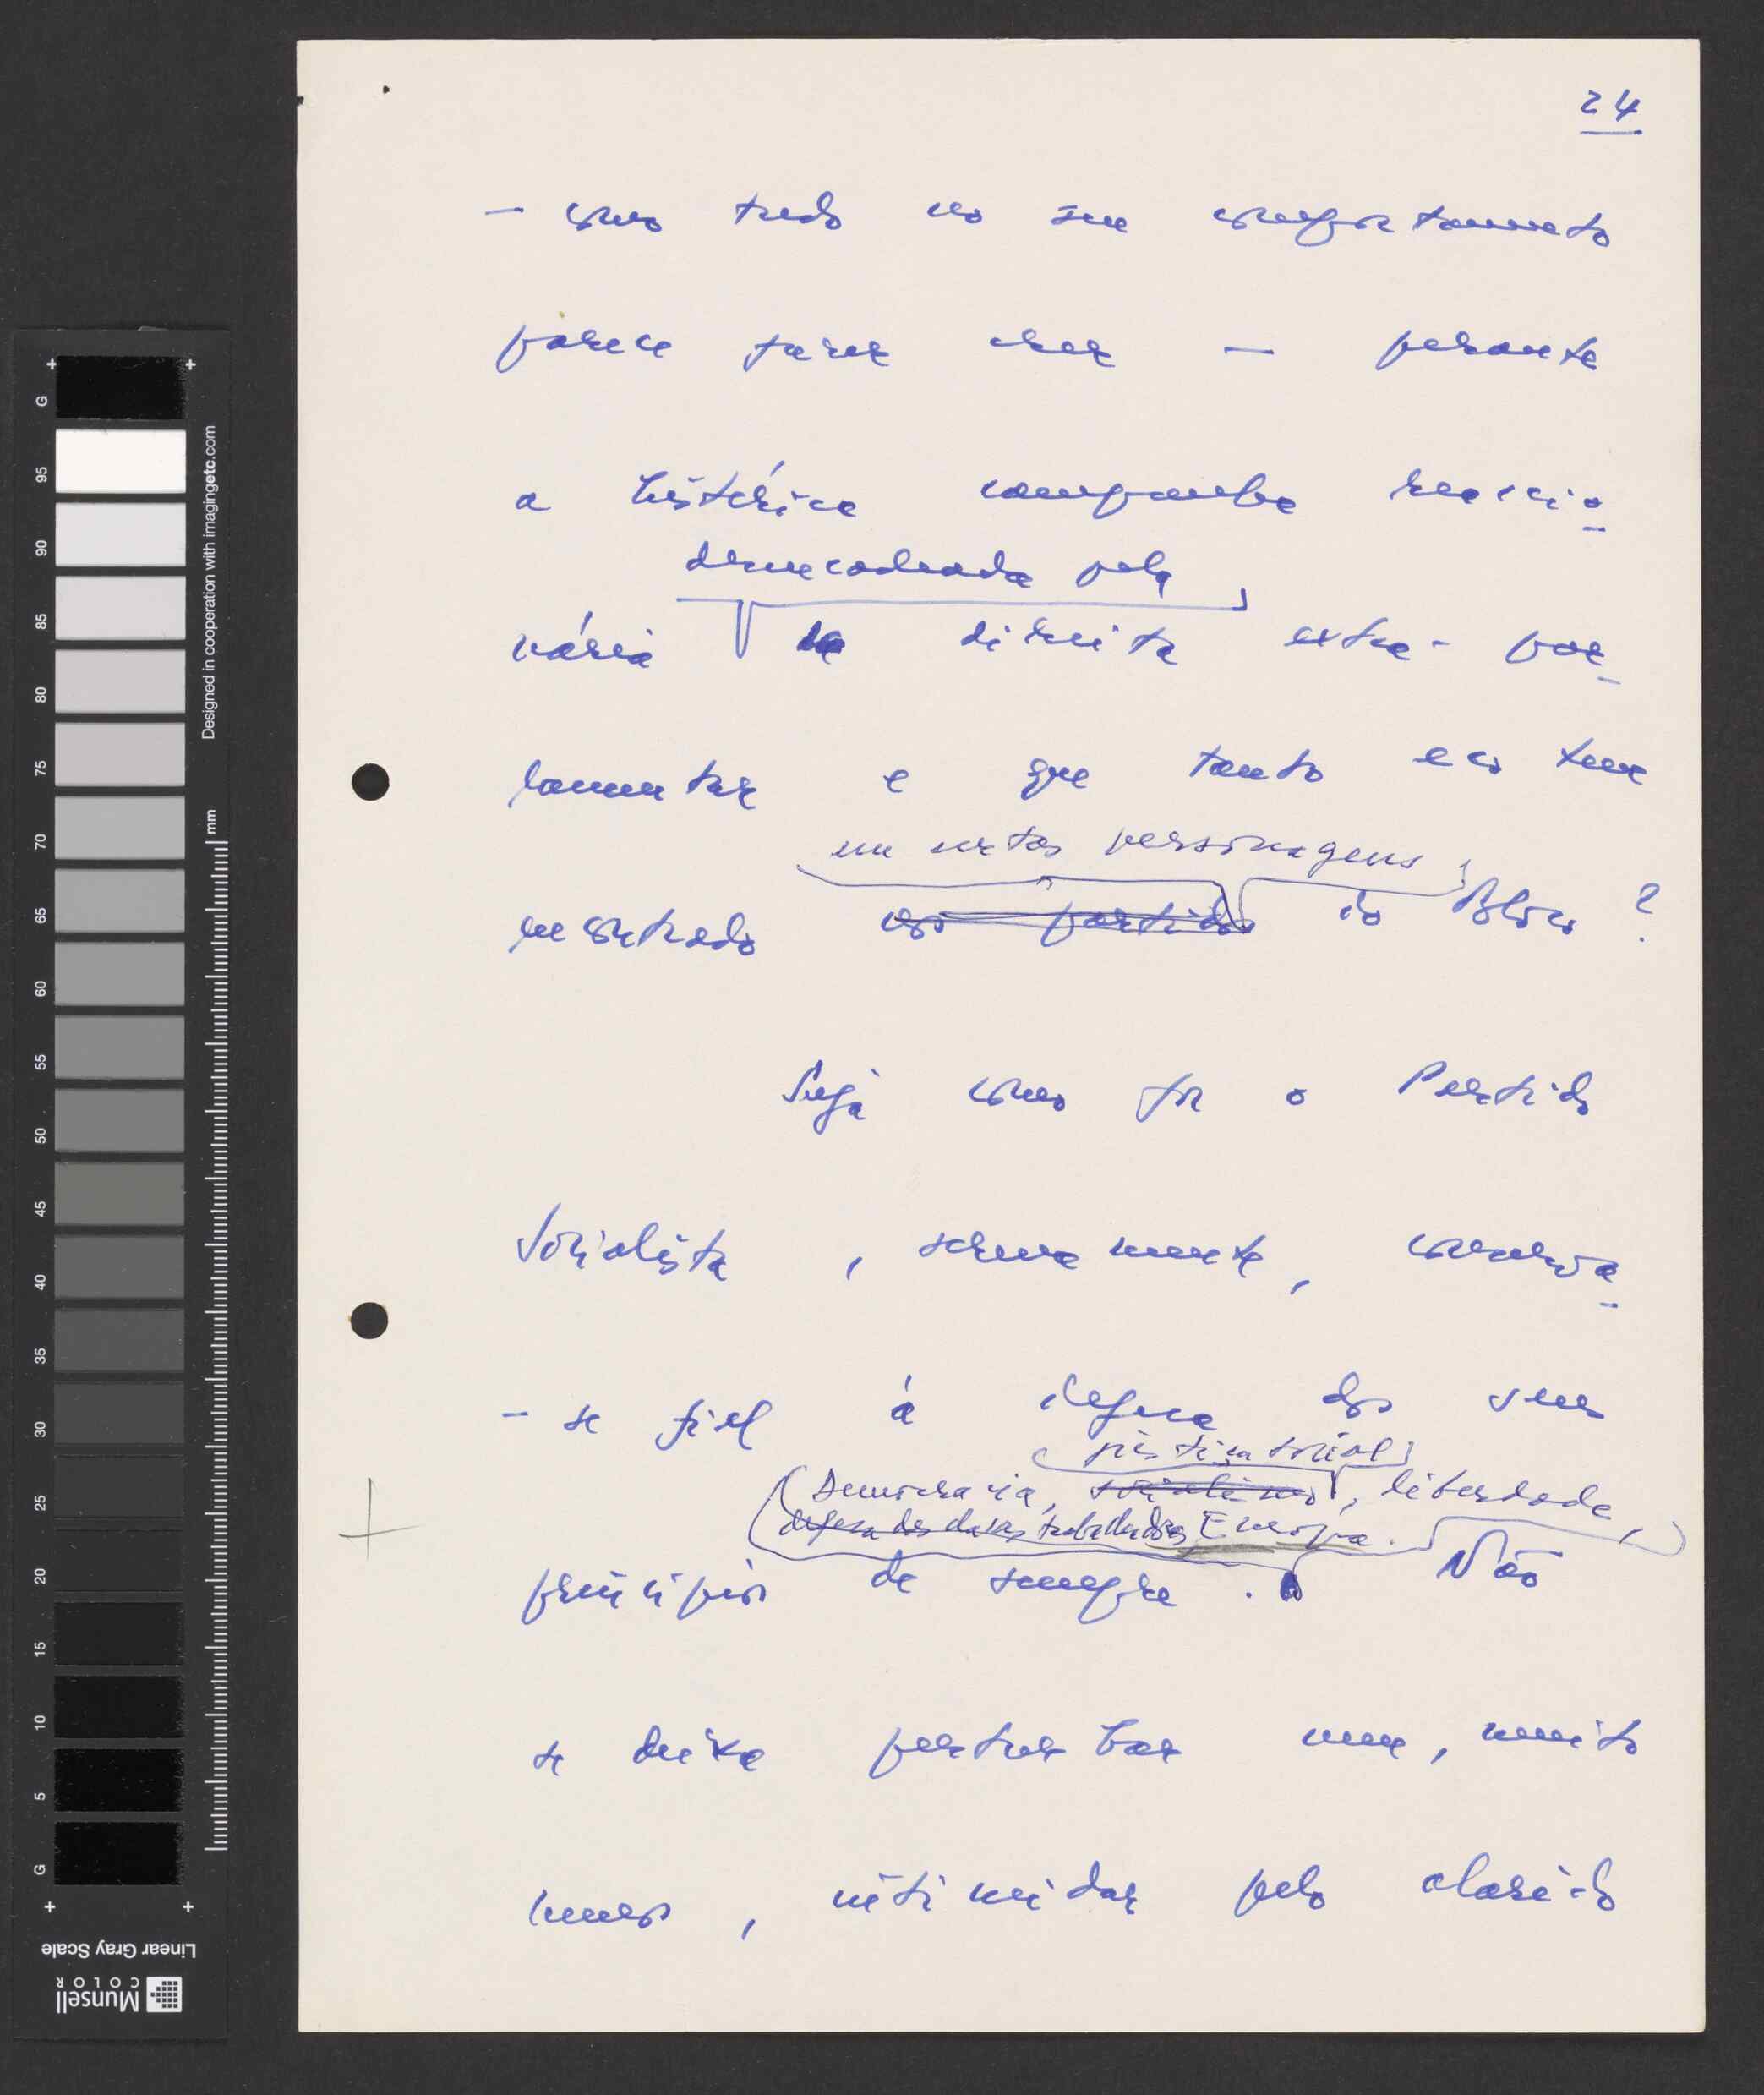 24
- como tudo no seu comportamento
parece fazer crer - perante
a histérica campanha reaccio
desencadeada pela
nária da direita extra-par
lamentar e que tanto eco tem
em certas personagens
encontrado nos partidos do Bloco ?
Seja como for o Partido
Socialista , serenamente, conserva
- se fiel à defesa dos seus
justiça social
(Democracia, socialismo, liberdade,
defesa das classes trabalhadoras, Europa.
princípios de sempre . Não
se deixa perturbar nem, muito
menos , intimidar pelo alarido
G
95
90
85
80
75
70
65
60
55
50
45
40
35
30
25
20
15
10
5
G
mm
Designed in cooperation with imagingetc.com
Linear Gray Scale
Munsell
COLOR